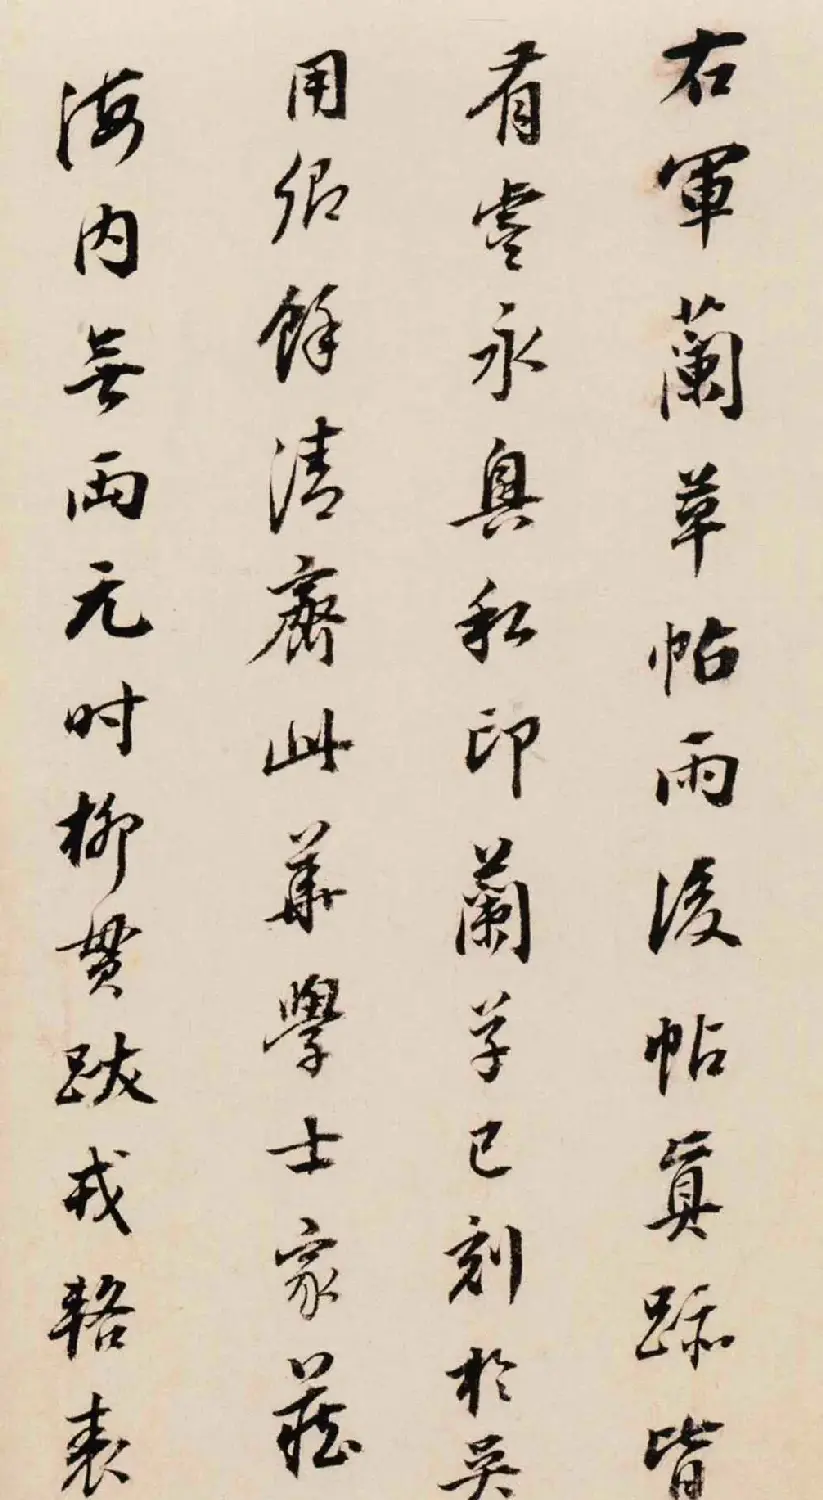 右軍蘭草帖雨後帖真跡皆
有虞永興私印蘭草已刻於吳
用卿餘清齋此華學士家藏
海內無兩元時柳貫跋戎輅表